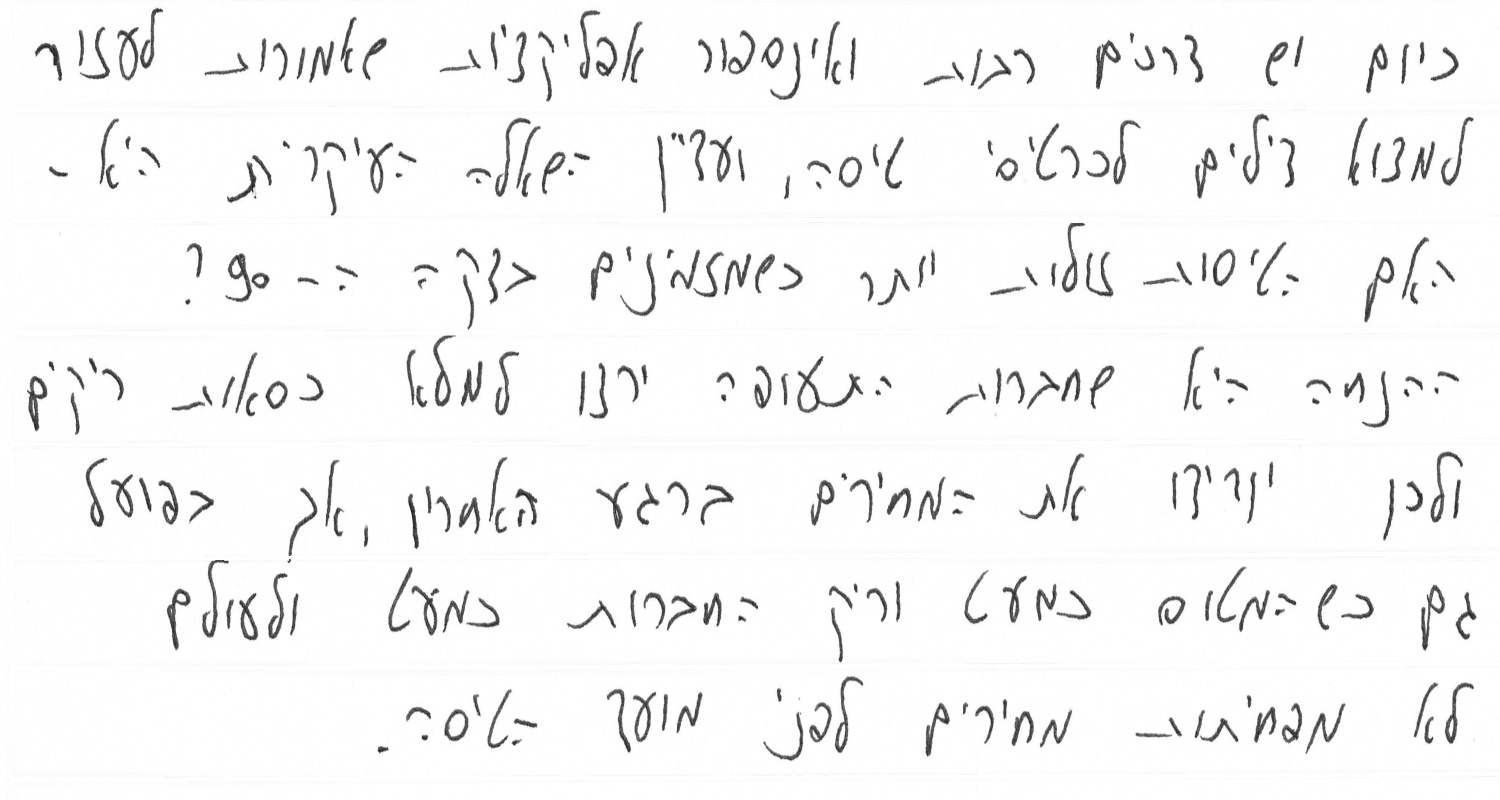 כיום יש דרכים רבות ואינספור אפליקציות שאמורות לעזור
למצוא דילים לכרטיסי טיסה, ועדיין השאלה העיקרית היא -
האם הטיסות זולות יותר כשמזמינים בדקה ה- 90?
ההנחה היא שחברות התעופה ירצו למלא כסאות ריקים
ולכן יורידו את המחירים ברגע האחרון, אך בפועל
גם כשהמטוס כמעט וריק החברות כמעט ולעולם
לא מפחיתות מחירים לפני מועד הטיסה.